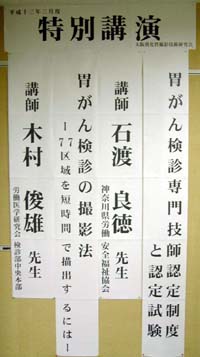 平成十二年二月度
特別講演
大阪消化管撮影技術研究会
胃がん検診専門技師認定制度
と認定試験
講師 石渡 良徳 先生
神奈川県労働 安全福祉協会
胃がん検診の撮影法
ー77区域を短時間で描出するにはー
講師 木村 俊雄 先生
労働医学研究会 検診部中央本部